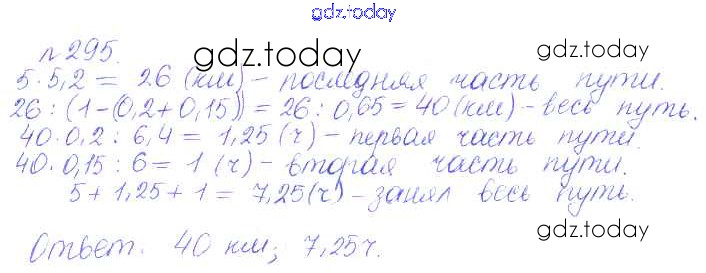 gdz.today
№295.
gdz.today
gdz.today
5·5,2 = 26 (км) - последняя часть пути.
26 : (1-(0,2+0,15)) = 26 : 0,65 = 40 (км) - весь путь.
40·0,2 : 6,4 = 1,25 (ч) - первая часть пути.
40·0,15 : 6 = 1 (ч) - вторая часть пути.
5+1,25+1 = 7,25 (ч) - занял весь путь.
Ответ. 40 км; 7,25 ч.
gdz.today
gdz.today